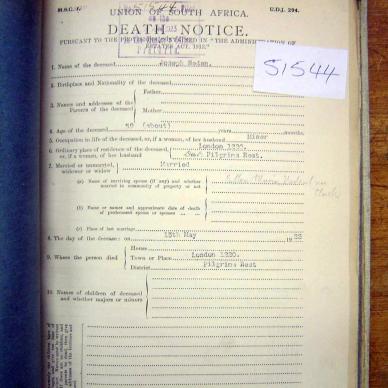 M.S.C. 4.
51544
U.D.J. 294.
UNION OF SOUTH AFRICA.
DEATH NOTICE.
PURSUANT TO THE PROVISIONS CONTAINED IN "THE ADMINISTRATION OF
ESTATES ACT, 1913."
51544
1. Name of the deceased Joseph
2. Birthplace and Nationality of the deceased
3. Names and addresses of the Parents of the deceased
Father
Mother
4. Age of the deceased 50 (about) years months.
5. Occupation in life of the deceased, or, if a woman, of her husband Miner
6. Ordinary place of residence of the deceased, or, if a woman, of her husband
London 1220.
Pilgrims Rest.
7. Married or unmarried, widower or widow Married
(a) Name of surviving spouse (if any) and whether married in community of property or not
(b) Name or names and approximate date of death of predeceased spouse or spouses
(c) Place of last marriage
8. The day of the decease: on 15th May 19
9. Where the person died
House
Town or Place London 1220.
District Pilgrims Rest
10. Names of children of deceased and whether majors or minors